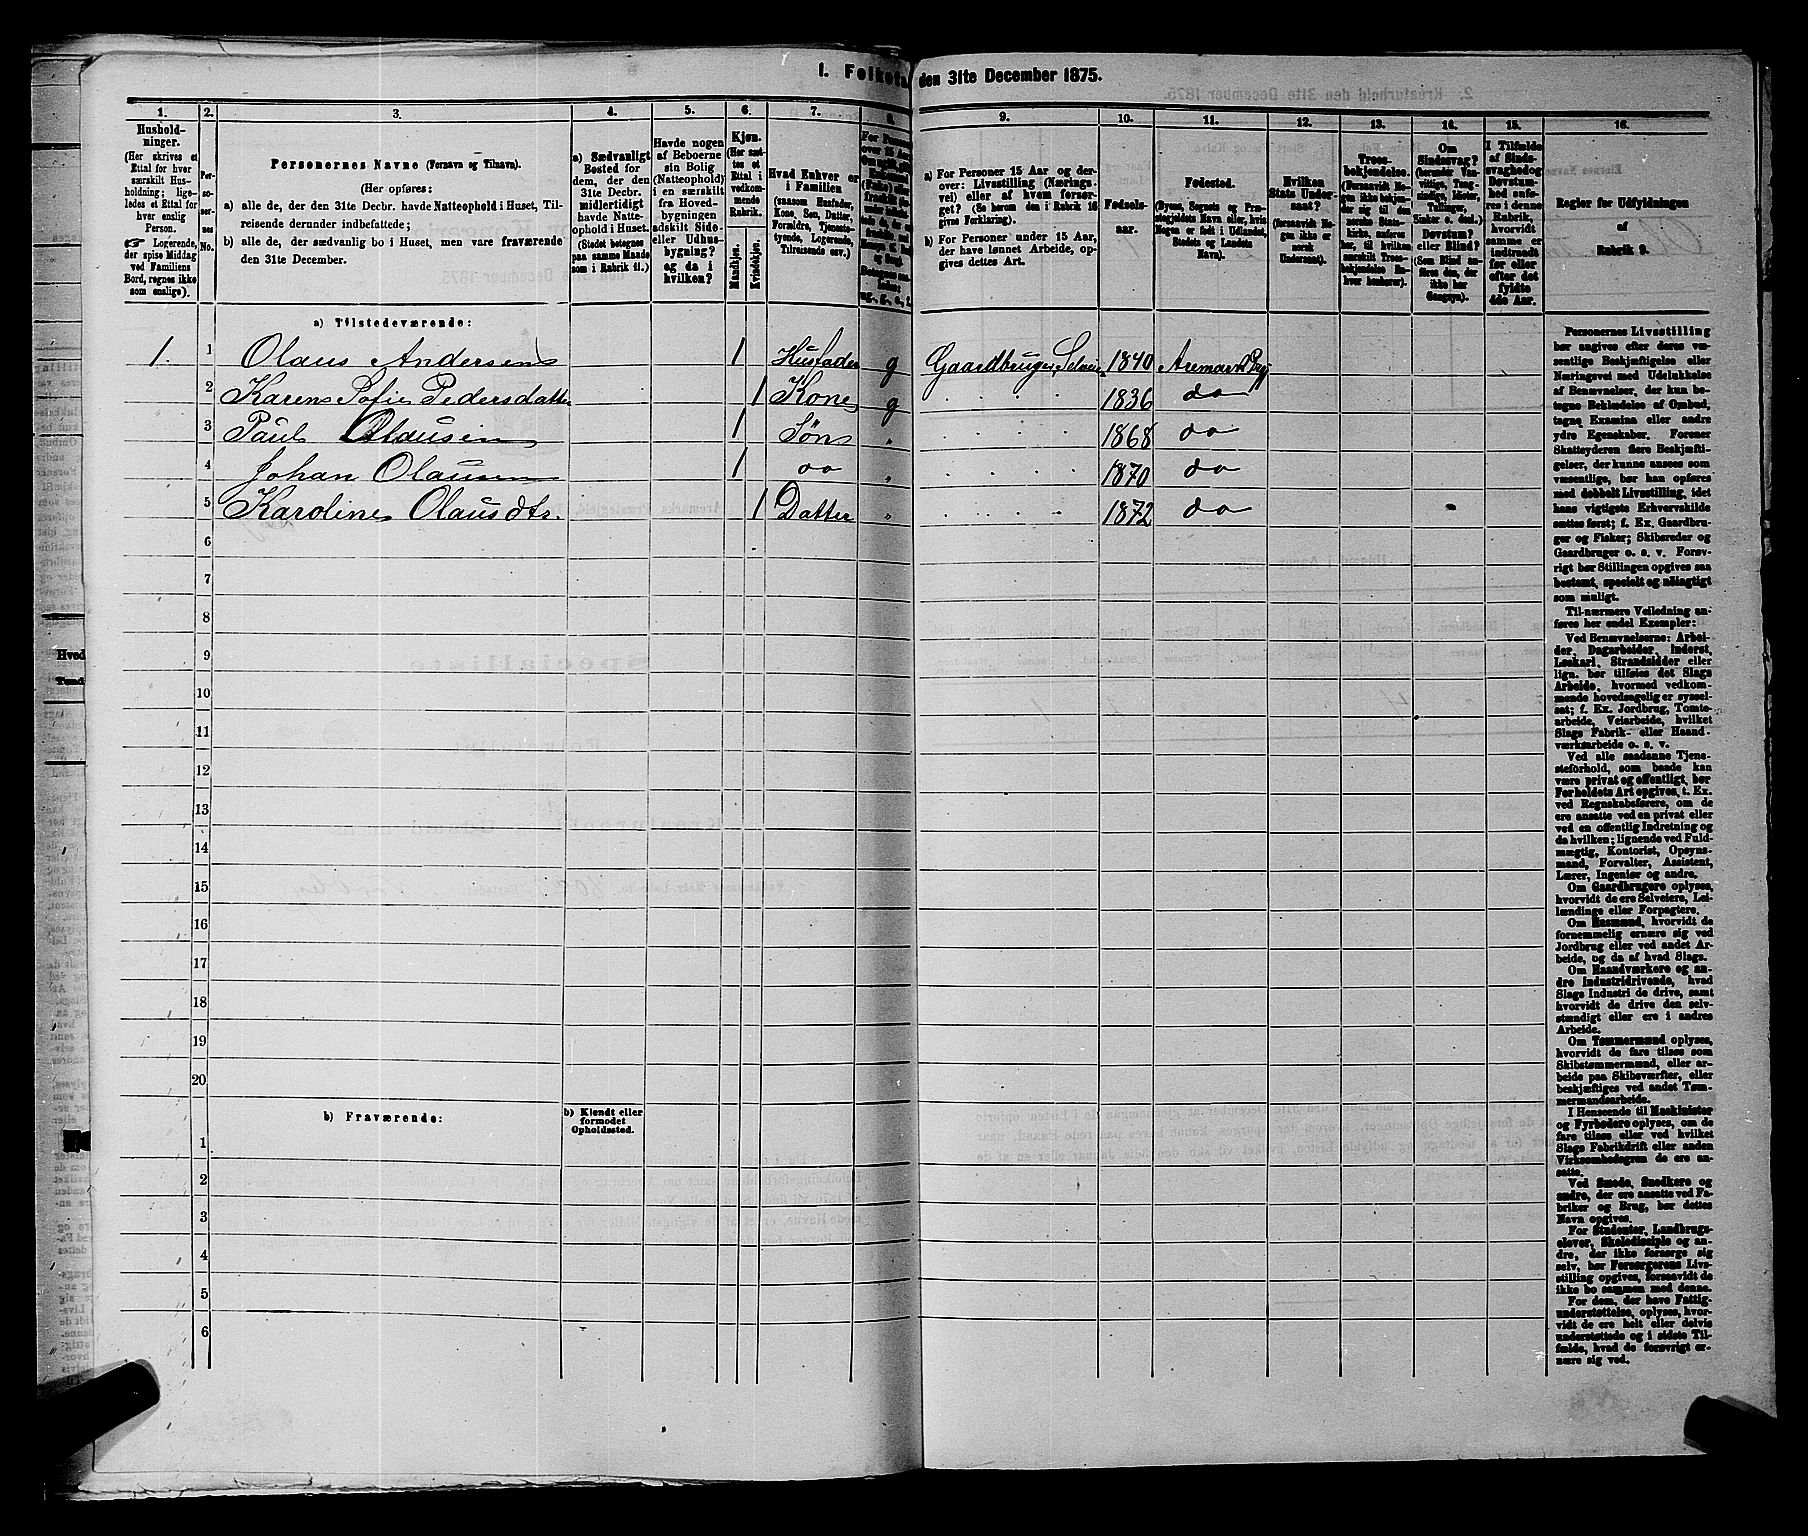 1. Folketæ den 31te December 1875.
1. 2. 3. 4. 5. 6. 7. 8. 9. 10. 11. 12. 13. 14. 15. 16.
Hushold-
ninger.
(Her skrives et
Ettal for hver
særskilt Hus-
holdning; lige-
ledes et Ettal for
hver enslig
Person.
☞ Logerende,
der spise Middag
ved Familiens
Bord, regnes ikke
som enslige).
Per-
so-
ner-
nes
No.
Personernes Navne (Fornavn og Tilnavn).
(Her opføres:
a) alle de, der den 31te Decbr. havde Natteophold i Huset, Til-
reisende derunder indbefattede;
b) alle de, der sædvanlig bo i Huset, men vare fraværende
den 31te December.
a) Sædvanligt
Bosted for
dem, der den
31te Decbr.
midlertidigt
havde Natte-
ophold i Huset.
(Stedet betegnes
paa samme Maade
som i Rubrik 11.)
Havde nogen
af Beboerne
sin Bolig
(Natteophold)
i en særskilt
fra Hoved-
bygningen
adskilt Side-
eller Udhus-
bygning?
og da i
hvilken?
Kjøn.
(Her sæt-
tes et
Ettal i
vedkom-
mende
Rubrik.
Mandkjøn.
Kvindekjøn.
Hvad Enhver er
i Familien
(saasom Husfader,
Kone, Søn, Datter,
Forældre, Tjeneste-
tyende, Logerende,
Tilreisende osv.)
a) For Personer 15 Aar og der-
over: Livsstilling (Nærings-
vei) eller af hvem forsør-
get? (Se herom den i Rubrik 16
givne Forklaring).
b) For Personer under 15 Aar,
der have lønnet Arbeide, op-
gives dettes Art.
Fødsels-
aar.
Fødested.
(Byens, Sognets og Præ-
stegjeldets Navn eller, hvis
Nogen er født i Udlandet,
Stedets og Landets
Navn).
Hvilken
Stats Under-
saat?
(forsaavidt No-
gen ikke er
norsk
Undersaat).
Troes-
bekjendelse.
(Forsaavidt No-
gen ikke bekjen-
der sig til den
norske Stats-
kirke, anføres
her, til hvilken
Troes-
bekjendelse En-
hver henhører).
Om
Sindssvag?
Døvstum?
eller Blind?
I Tilfælde
af Sinds-
svaghed og
Døvstum-
hed anfø-
res i denne
Rubrik,
hvorvidt
samme er
indtraadt
før eller
efter det
fyldte
4de Aar.
Regler for Udfyldningen
af
Rubrik 9.
a) Tilstedeværende:
1. 1 Olaus Andersen 1 Husfader g Gaardbruger, Selveier 1840 Aremark Pgj
2 Karen Sofie Pedersdatter 1 Kone g 1836 do
3 Paul Olausen 1 Søn „ 1868 do
4 Johan Olausen 1 do „ 1870 do
5 Karoline Olausdtr. 1 Datter „ 1872 do
6
7
8
9
10
11
12
13
14
15
16
17
18
19
20
b) Fraværende:
b) Kjendt eller
formodet
Opholdssted.
1
2
3
4
5
6
Personernes Livsstilling
bør angives efter deres væ-
sentlige Beskjæftigelse eller
Næringsvei med Udelukkelse
af Benævnelser, der kun be-
tegne Beklædelse af Ombud,
tagne Examina eller andre
ydre Egenskaber. Forener
Skatteyderen flere Beskjæfti-
gelser, der kunne ansees som
væsentlige, bør han opføres
med dobbelt Livsstilling, idet
hans vigtigste Erhvervskilde
sættes først; f. Ex. Gaardbru-
ger og Fisker; Skibsreder og
Gaardbruger o. s. v. Forøv-
rigt bør Stillingen opgives saa
bestemt, specielt og nøiagtigt
som muligt.
Til nærmere Veiledning an-
føres her endel Exempler:
Ved Benævnelserne: Arbei-
der, Dagarbeider, Inderst,
Løskarl, Strandsidder eller
lign. bør tilføies det Slags
Arbeide, hvormed vedkom-
mende hovedsagelig er syssel-
sat; f. Ex. Jordbrug, Tomte-
arbeide, Veiarbeide, hvilket
Slags Fabrik- eller Haand-
værksarbeide o. s. v.
Ved alle saadanne Tjene-
steforhold, som baade kan
være privat og offentligt, bør
Forholdets Art opgives, t. Ex.
ved Regnskabsførere, om de
ere ansatte ved en privat eller
ved en offentlig Indretning og
da hvilken; lignende ved Fuld-
mægtig, Kontorist, Opsyns-
mand, Forvalter, Assistent,
Lærer, Ingeniør og andre.
Om Gaardbrugere oplyses,
hvorvidt de ere Selveiere, Lei-
lændinge eller Forpagtere.
Om Husmænd, hvorvidt de
fornemmelig ernære sig ved
Jordbrug eller ved andet Ar-
beide, og da af hvad Slags.
Om Haandværkere og an-
dre Industridrivende, hvad
Slags Industri de drive, samt
hvorvidt de drive den selv-
stændigt eller ere i andres
Arbeide.
Om Tømmermænd oplyses,
hvorvidt de fare tilsøs som
Skibstømmermænd, eller ar-
beide paa Skibsværfter, eller
beskjæftiges ved andet Tøm-
mermandsarbeide.
I Henseende til Maskinister
og Fyrbødere oplyses, om de
fare tilsøs eller ved hvilket
Slags Fabrikdrift eller anden
Virksomhedsgren de ere an-
satte.
Ved Smede, Snedkere og
andre, der ere ansatte ved Fa-
briker og Brug, bør dettes
Navn opgives.
For Studenter, Landbrugs-
elever, Skoledisciple og an-
dre, der ikke forsørge sig
selv, bør Forsørgerens Livs-
stilling opgives, forsaavidt de
ikke bo sammen med denne.
For dem, der have Fattig-
understøttelse, oplyses, hvor-
vidt de ere helt eller delvis
understøttede og i sidste Til-
fælde, hvad de forøvrigt er-
nære sig ved.